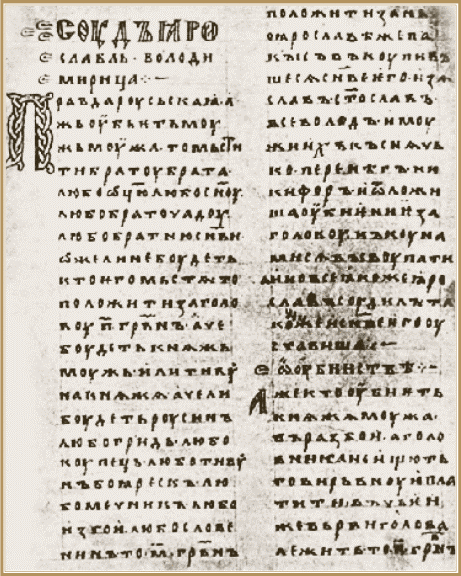 СОУДЪ ꙖРО
СЛАВЛЬ · ВОЛОДИ
МИРИЦА
ПРАВДА РОУСЬСКАꙖ · А
ЖЬ ОУБЬЕТЬ МОУ
ЖЬ МОУЖА · ТО МЬСТИ
ТИ БРАТОУ БРАТА
ЛЮБО ОЦЮ ЛЮБО СНОУ
ЛЮБО БРАТОУЧАДОУ
ЛЮБО БРАТНЮ СНВИ
ОЖЕ ЛИ НЕ БОУДЕТЬ
КТО ЕГО МЬСТѦ ТО
ПОЛОЖИТИ ЗА ГОЛО
ВОУ П҃ ГРВНЪ АЧЕ
БОУДЕТЬ КНѦЖЬ
МОУЖЬ ИЛИ ТИВОУ
НА КНѦЖѦ АЧЕ ЛИ
БОУДЕТЬ РОУСИНЪ
ЛЮБО ГРИДЬ · ЛЮБО
КОУПЕЦЬ · ЛЮБО ТИВОУ
НЪ БОꙖРЕСКЪ ЛЮ
БО МЕЧНИКЪ ЛЮБО
ИЗГОИ · ЛЮБО СЛОВЕ
НИНЪ ТО · М҃ · ГРВНЪ
ПОЛОЖИТИ ЗА НЬ
ПО ꙖРОСЛАВѢ ЖЕ ПА
КЫ СЪВЪКОУПИВЪ
ШЕСѦ СНВЕ ЕГО · ИЗѦ
СЛАВЪ · СТОСЛАВЪ
ВСЕВОЛОДЪ · И МОУ
ЖИ ИХЪ КЪСНѦЧЬ
КО · ПЕРЕНѢГЪ НИ
КИФОРЪ · И ѾЛОЖИ
ША ОУБИЕНИЕ ЗА
ГОЛОВОУ НЪ КОУНА
МИ СѦ ВЫКОУПАТИ
А ИНО ВСЕ ꙖКОЖЕ ꙖРО
СЛАВЪ СОУДИЛЪ ТА
КОЖЕ И СНВЕ ЕГО ОУ
СТАВИША
О ОУБИИСТВѢ
АЖЕ КТО ОУБИѤТЬ
КНѦЖѦ МОУЖА
ВЪ РАЗБОИ · А ГОЛО
ВНИКА НЕ ИЩЮТЬ
ТО ВИРЬВНОУЮ ПЛА
ТИТИ · ВЪ ЧЬЕИ
ЖЕ ВЬРВИ ГОЛОВА
ЛЕЖИТЬ ТО · П҃ · ГРВНЪ